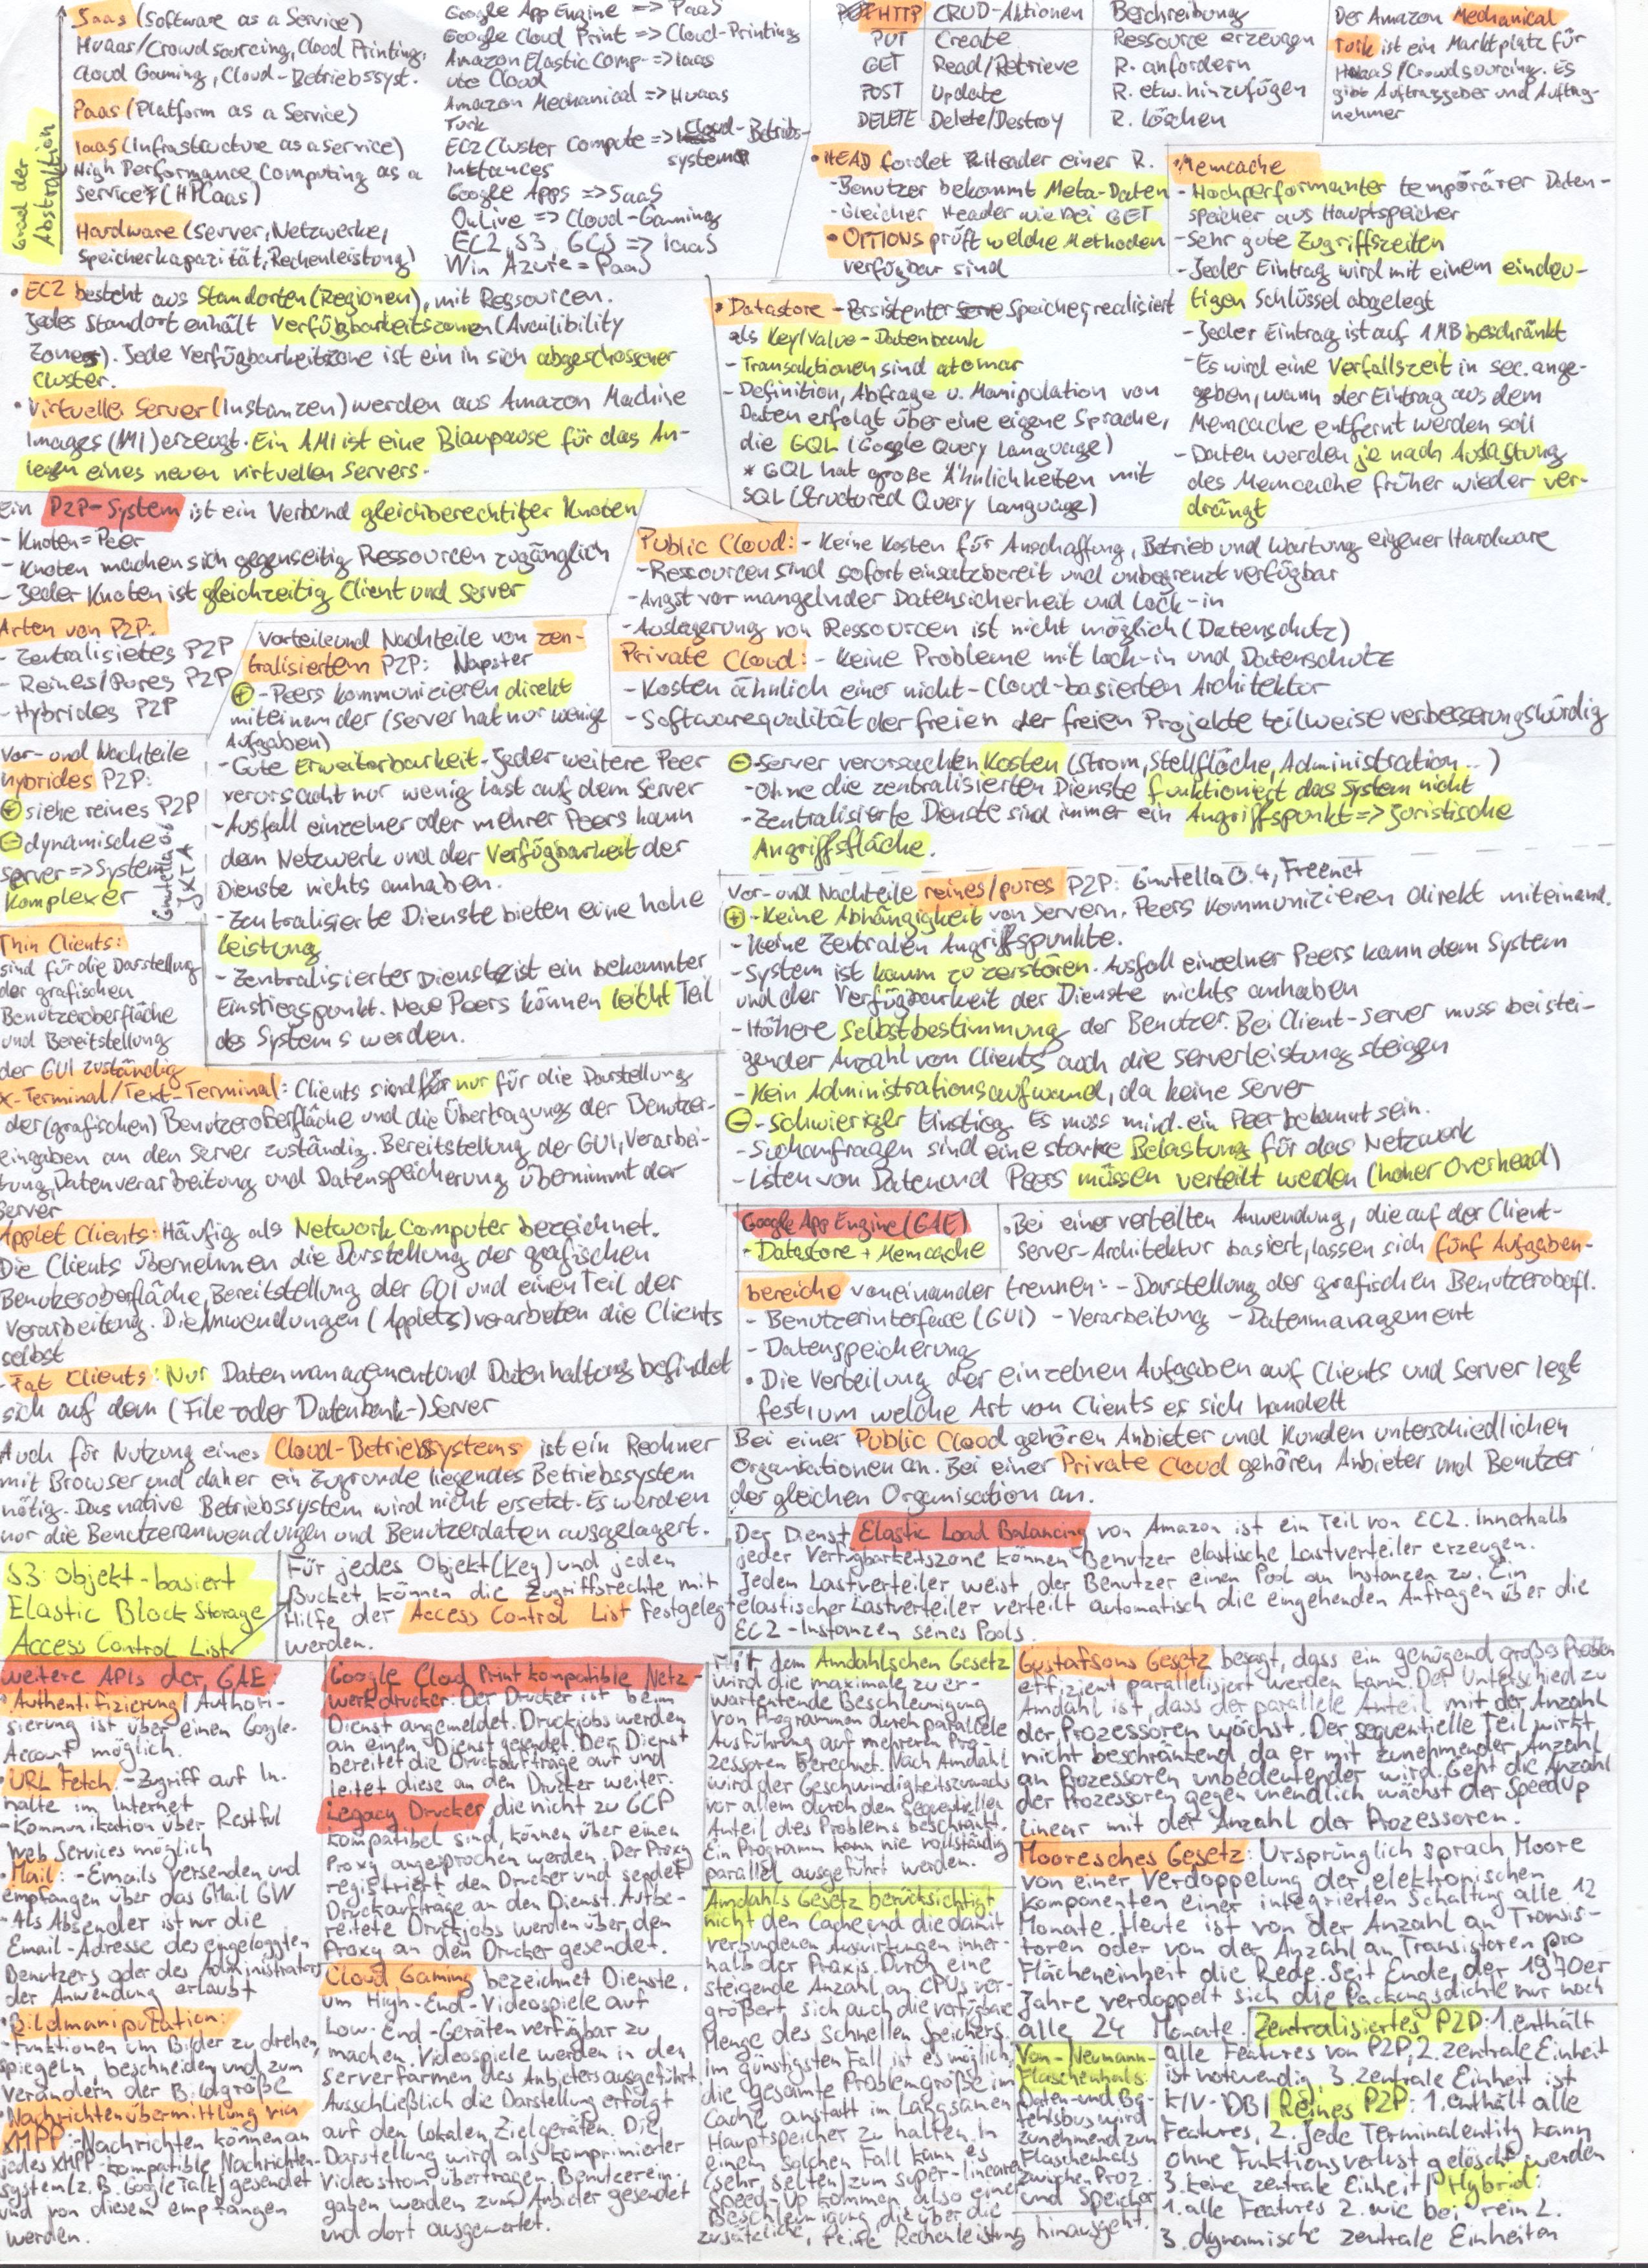 Saas (Software as a Service)
Huaas/Crowdsourcing, Cloud Printing,
Cloud Gaming, Cloud-Betriebssyst.
Paas (Platform as a Service)
Iaas (Infrastructure as a service)
High Performance Computing as a
Service (HPCaas)
Hardware (Server, Netzwerke,
Speicherkapazität, Rechenleistung)
Grad der
Abstraktion
Google App Engine => PaaS
Google Cloud Print => Cloud-Printing
Amazon Elastic Comp- => Iaas
ute Cloud
Amazon Mechanical => Huaas
Turk
EC2 Cluster Compute => Cloud-Betriebs-
Instances system
Google Apps => SaaS
OnLive => Cloud-Gaming
EC2, S3, GCS => IaaS
Win Azure = PaaS
HTTP | CRUD-Aktionen | Beschreibung
PUT | Create | Ressource erzeugen
GET | Read/Retrieve | R. anfordern
POST | Update | R. etw. hinzufügen
DELETE | Delete/Destroy | R. löschen
Der Amazon Mechanical
Turk ist ein Marktplatz für
HuaaS/Crowdsourcing. Es
gibt Auftraggeber und Auftrag-
nehmer
• HEAD fordet Header einer R.
- Benutzer bekommt Meta-Daten
- Gleicher Header wie bei GET
• OPTIONS prüft welche Methoden
verfügbar sind
• Memcache
- Hochperformanter temporärer Daten-
speicher aus Hauptspeicher
- Sehr gute Zugriffszeiten
- Jeder Eintrag wird mit einem eindeu-
tigen Schlüssel abgelegt
- Jeder Eintrag ist auf 1MB beschränkt
- Es wird eine Verfallszeit in sec. ange-
geben, wann der Eintrag aus dem
Memcache entfernt werden soll
- Daten werden je nach Auslastung
des Memcache früher wieder ver-
drängt
• EC2 besteht aus Standorten (Regionen), mit Ressourcen.
Jedes Standort enhält Verfügbarkeitszonen (Availibility
Zones). Jede Verfügbarkeitszone ist ein in sich abgeschossener
Cluster.
• Virtueller Server (Instanzen) werden aus Amazon Machine
Images (AMI) erzeugt. Ein AMI ist eine Blaupause für das An-
legen eines neuen virtuellen Servers.
• Datastore - Persistenter Speicher, realisiert
als Key/Value-Datenbank
- Transaktionen sind atomar
- Definition, Abfrage u. Manipulation von
Daten erfolgt über eine eigene Sprache,
die GQL (Google Query Language)
* GQL hat große Ähnlichkeiten mit
SQL (Structured Query Language)
Ein P2P-System ist ein Verbund gleichberechtigter Knoten
- Knoten = Peer
- Knoten machen sich gegenseitig Ressourcen zugänglich
- Jeder Knoten ist gleichzeitig Client und Server
Public Cloud: - Keine Kosten für Anschaffung, Betrieb und Wartung eigener Hardware
- Ressourcen sind sofort einsatzbereit und unbegrenzt verfügbar
- Angst vor mangelnder Datensicherheit und Lock-in
- Auslagerung von Ressourcen ist nicht möglich (Datenschutz)
Private Cloud: - Keine Probleme mit lock-in und Datenschutz
- Kosten ähnlich einer nicht-Cloud-basierten Architektur
- Softwarequalität der freien der freien Projekte teilweise verbesserungswürdig
Arten von P2P:
- Zentralisietes P2P
- Reines/Pures P2P
- Hybrides P2P
Vor- und Nachteile
hybrides P2P:
+ siehe reines P2P
- dynamische
Server => System
komplexer
Gnutella 0.6
JXTA
Vorteile und Nachteile von zen-
tralisiertem P2P: Napster
+ - Peers kommunizieren direkt
miteinander (Server hat nur wenige
Aufgaben)
- Gute Erweiterbarkeit. Jeder weitere Peer
verursacht nur wenig Last auf dem Server
- Ausfall einzelner oder mehrer Peers kann
dem Netzwerk und der Verfügbarkeit der
Dienste nichts anhaben.
- Zentralisierte Dienste bieten eine hohe
Leistung
- Zentralisierter Dienst ist ein bekannter
Einstiegspunkt. Neue Peers können leicht Teil
des Systems werden.
- - Server verursachen Kosten (Strom, Stellfläche, Administration...)
- Ohne die zentralisierten Dienste funktioniert das System nicht
- Zentralisierte Dienste sind immer ein Angriffspunkt => Juristische
Angriffsfläche.
Vor- und Nachteile reines/pures P2P: Gnutella 0.4, Freenet
+ - Keine Abhängigkeit von Servern. Peers kommunizieren direkt miteinand.
- Keine Zentralen Angriffspunkte.
- System ist kaum zu zerstören. Ausfall einzelner Peers kann dem System
und der Verfügbarkeit der Dienste nichts anhaben
- Höhere Selbstbestimmung der Benutzer. Bei Client-Server muss bei stei-
gender Anzahl von Clients auch die Serverleistung steigen
- Kein Administrationsaufwand, da keine Server
- - Schwieriger Einstieg. Es muss mind. ein Peer bekannt sein.
- Suchanfragen sind eine starke Belastung für das Netzwerk
- Listen von Daten und Peers müssen verteilt werden (hoher Overhead)
Thin Clients:
sind für die Darstellung
der grafischen
Benutzeroberfläche
und Bereitstellung
der GUI zuständig
X-Terminal/Text-Terminal: Clients sind nur für die Darstellung
der (grafischen) Benutzeroberfläche und die Übertragung der Benutzer-
eingaben an den Server zuständig. Bereitstellung der GUI, Verarbei-
tung, Datenverarbeitung und Datenspeicherung übernimmt der
Server
Applet Clients: Häufig als Network Computer bezeichnet.
Die Clients übernehmen die Darstellung der grafischen
Benutzeroberfläche, Bereitstellung der GUI und einen Teil der
Verarbeitung. Die Anwendungen (Applets) verarbeiten die Clients
selbst
- Fat Clients: Nur Datenmanagement und Datenhaltung befindet
sich auf dem (File- oder Datenbank-) Server
Google App Engine (GAE)
- Datastore + Memcache
• Bei einer verteilten Anwendung, die auf der Client-
Server-Architektur basiert, lassen sich fünf Aufgaben-
bereiche voneinander trennen: - Darstellung der grafischen Benutzeroberfl.
- Benutzerinterface (GUI) - Verarbeitung - Datenmanagement
- Datenspeicherung
• Die Verteilung der einzelnen Aufgaben auf Clients und Server legt
fest, um welche Art von Clients es sich handelt
Auch für Nutzung eines Cloud-Betriebssystems ist ein Rechner
mit Browser und daher ein zugrunde liegendes Betriebssystem
nötig. Das native Betriebssystem wird nicht ersetzt. Es werden
nur die Benutzeranwendungen und Benutzerdaten ausgelagert.
Bei einer Public Cloud gehören Anbieter und Kunden unterschiedlichen
Organisationen an. Bei einer Private Cloud gehören Anbieter und Benutzer
der gleichen Organisation an.
Der Dienst Elastic Load Balancing von Amazon ist ein Teil von EC2. Innerhalb
jeder Verfügbarkeitszone können Benutzer elastische Lastverteiler erzeugen.
Jedem Lastverteiler weist der Benutzer einen Pool an Instanzen zu. Ein
elastischer Lastverteiler verteilt automatisch die eingehenden Anfragen über die
EC2-Instanzen seines Pools.
S3: Objekt-basiert
Elastic Block Storage
Access Control List
Für jedes Objekt (Key) und jeden
Bucket können die Zugriffsrechte mit
Hilfe der Access Control List festgelegt
werden.
Weitere APIs der GAE:
• Authentifizierung / Authori-
sierung ist über einen Google-
Account möglich.
• URL Fetch: - Zugriff auf In-
halte im Internet
- Kommunikation über Restful
Web Services möglich
• Mail: - Emails versenden und
empfangen über das GMail GW
- Als Absender ist nur die
Email-Adresse des eingeloggten
Benutzers oder des Administrators
der Anwendung erlaubt
• Bildmanipulation:
- Funktionen um Bilder zu drehen,
spiegeln, beschneiden und zum
verändern der Bildgröße
• Nachrichtenübermittlung via
XMPP: - Nachrichten können an
jedes XMPP-kompatible Nachrichten-
system (z.B. GoogleTalk) gesendet
und von diesem empfangen
werden.
Google Cloud Print kompatible Netz-
werkdrucker: Der Drucker ist beim
Dienst angemeldet. Druckjobs werden
an einen Dienst gesendet. Der Dienst
bereitet die Druckaufträge auf und
leitet diese an den Drucker weiter.
Legacy Drucker, die nicht zu GCP
kompatibel sind, können über einen
Proxy angesprochen werden. Der Proxy
registriert den Drucker und sendet
Druckaufträge an den Dienst. Aufbe-
reitete Druckjobs werden über den
Proxy an den Drucker gesendet.
Cloud Gaming bezeichnet Dienste,
um High-End-Videospiele auf
Low-End-Geräten verfügbar zu
machen. Videospiele werden in den
Serverfarmen des Anbieters ausgeführt.
Ausschließlich die Darstellung erfolgt
auf den lokalen Zielgeräten. Die
Darstellung wird als komprimierter
Videostrom übertragen. Benutzerein-
gaben werden zum Anbieter gesendet
und dort ausgewertet.
Mit dem Amdahlschen Gesetz
wird die maximale zu er-
wartentende Beschleunigung
von Programmen durch parallele
Ausführung auf mehreren Pro-
zessoren berechnet. Nach Amdahl
wird der Geschwindigkeitszuwachs
vor allem durch den sequentiellen
Anteil des Problems beschränkt.
Ein Programm kann nie vollständig
parallel ausgeführt werden.
Amdahls Gesetz berücksichtigt
nicht den Cache und die damit
verbundenen Auswirkungen inner-
halb der Praxis. Durch eine
steigende Anzahl an CPUs ver-
größert sich auch die verfügbare
Menge des schnellen Speichers.
Im günstigsten Fall ist es möglich,
die gesamte Problemgröße im
Cache anstatt im langsamen
Hauptspeicher zu halten. In
einem solchen Fall kann es
(sehr selten) zum super-linearen
Speed-Up kommen, also einer
Beschleunigung, die über die
zusätzliche, reine Rechenleistung hinausgeht.
Gustafsons Gesetz besagt, dass ein genügend großes Problem
effizient parallelisiert werden kann. Der Unterschied zu
Amdahl ist, dass der parallele Anteil mit der Anzahl
der Prozessoren wächst. Der sequentielle Teil wirkt
nicht beschränkend, da er mit zunehmender Anzahl
an Prozessoren unbedeutender wird. Geht die Anzahl
der Prozessoren gegen unendlich, wächst der SpeedUp
linear mit der Anzahl der Prozessoren.
Mooresches Gesetz: Ursprünglich sprach Moore
von einer Verdoppelung der elektronischen
Komponenten einer integrierten Schaltung alle 12
Monate. Heute ist von der Anzahl an Transis-
toren oder von der Anzahl an Transistoren pro
Flächeneinheit die Rede. Seit Ende der 1970er
Jahre verdoppelt sich die Packungsdichte nur noch
alle 24 Monate.
Von-Neumann-
Flaschenhals:
Daten- und Be-
fehlsbus wird
zunehmend zum
Flaschenhals
zwischen Proz.
und Speicher
Zentralisiertes P2P: 1. enthält
alle Features von P2P, 2. zentrale Einheit
ist notwendig, 3. zentrale Einheit ist
K/V-DB | Reines P2P: 1. enthält alle
Features, 2. Jede Terminalentity kann
ohne Funktionsverlust gelöscht werden
3. keine zentrale Einheit | Hybrid:
1. alle Features 2. wie bei rein 2.
3. dynamische zentrale Einheiten